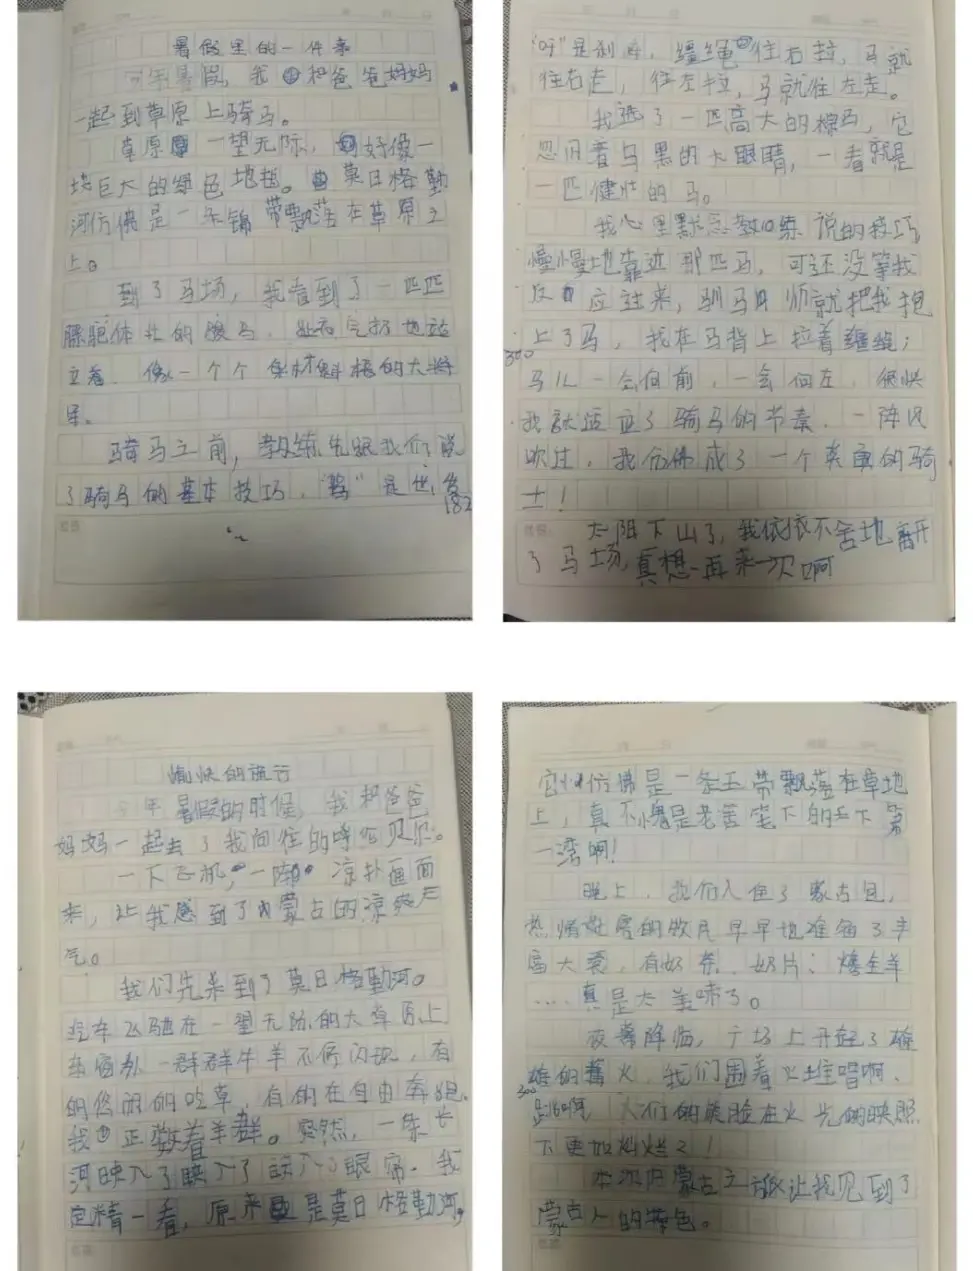 暑假里的一件亲
年暑假,我和爸爸妈妈
一起到草原上骑马。
草原 一望无际,好像一
块巨大的绿色地毯。莫日格勒
河仿佛是一条锦带飘落在草原之
上。
到了马场,我看到了一匹匹
膘肥体壮的骏马,气 地站
立着,像一个个身材魁梧的大将
军。
骑马之前,教练先跟我们说
了骑马的基本技巧,“驾”是出发
182
“吁”是刹车,缰绳往右拉,马就
往右走,往左拉,马就往左走。
我选了一匹高大的棕马,它
忽闪着乌黑的大眼睛,一看就是
一匹健壮的马。
我心里默念教练说的技巧,
慢慢地靠近那匹马,可还没等我
反应过来,驯马师就把我抱
上了马,我在马背上拉着缰绳;
300
马儿一会向前,一会向左,很快
我就适应了骑马的节奏.一阵风
吹过,我仿佛成了一个英勇的骑
士!
太阳下山了,我依依不舍地离开
了马场,真想再来一次啊
愉快的旅行
年暑假的时候,我和爸爸
妈妈一起去了我向往的呼伦贝尔。
一下飞机,一阵凉扑面而
来,让我感到了内蒙古的凉爽天
气。
我们先来到了莫日格勒河。
汽车飞驰在一望无际的大草原上
车窗外一群群牛羊不停闪现,有
的悠闲的吃草,有的在自由奔跑.
我正数着羊群。突然,一条长
河映入了映入了 入了眼帘.我
定精一看,原来是莫日格勒河,
它仿佛是一条玉带飘落在草地
上,真不愧是老舍笔下的天下第
一湾啊!
晚上,我们入住了蒙古包,
热情好客的牧民早早地准备了丰
富大餐,有奶茶、奶片;烤全羊
....真是太美味了。
夜幕降临,广场上开起了雄
雄的篝火,我们围着火堆唱啊、
300
跳啊,人们的笑脸在火光的映照
下更加灿烂了!
本次内蒙古之旅让我见到了
蒙古人的特色。